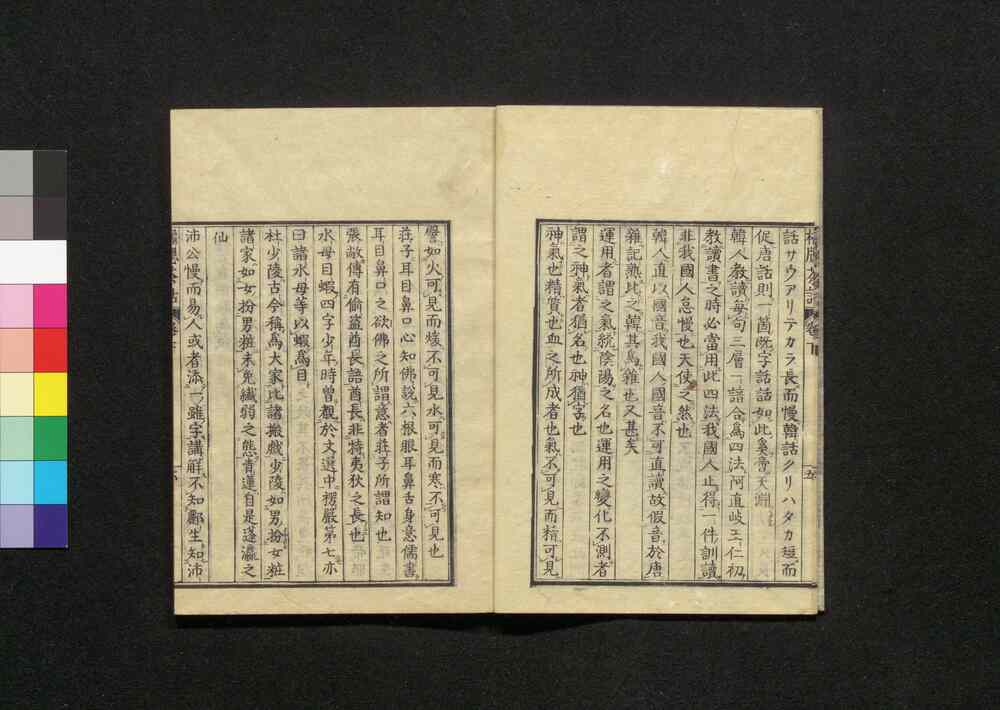 橘牕茶話 卷下
話サウアリテカラ長而慢韓話クリハタカ短而
促唐話則一箇既字話話如此奚啻天淵
韓人教讀每句三層一諳合為四法阿直岐王仁初
教讀書之時必當用此四法我國人止得一件訓讀
非我國人怠慢也天使之然也
韓人直以國音我國人國音不可直讀故假音於唐
雜記熟比之韓其為雜也又甚矣
運用者謂之氣統陰陽之名也運用之變化不測者
謂之神氣者猶名也神猶字也
神氣也精質也血之所成者也氣不可見而精可見
譬如火可見而煖不可見水可見而寒不可見也
莊子耳目鼻口心知佛說六根眼耳鼻舌身意儒書
耳目鼻口之欲佛之所謂意者莊子所謂知也
張敞傳有偷盜酋長語酋長非特夷狄之長也
水母目蝦四字少年時曾觀於文選中楞嚴第七亦
曰諸水母等以蝦為目
杜少陵古今稱為大家比諸搬戲少陵如男扮女粧
諸家如女扮男粧未免纖弱之態青蓮自是蓬瀛之
仙
沛公慢而易人或者添一雖字講解不知酈生知沛